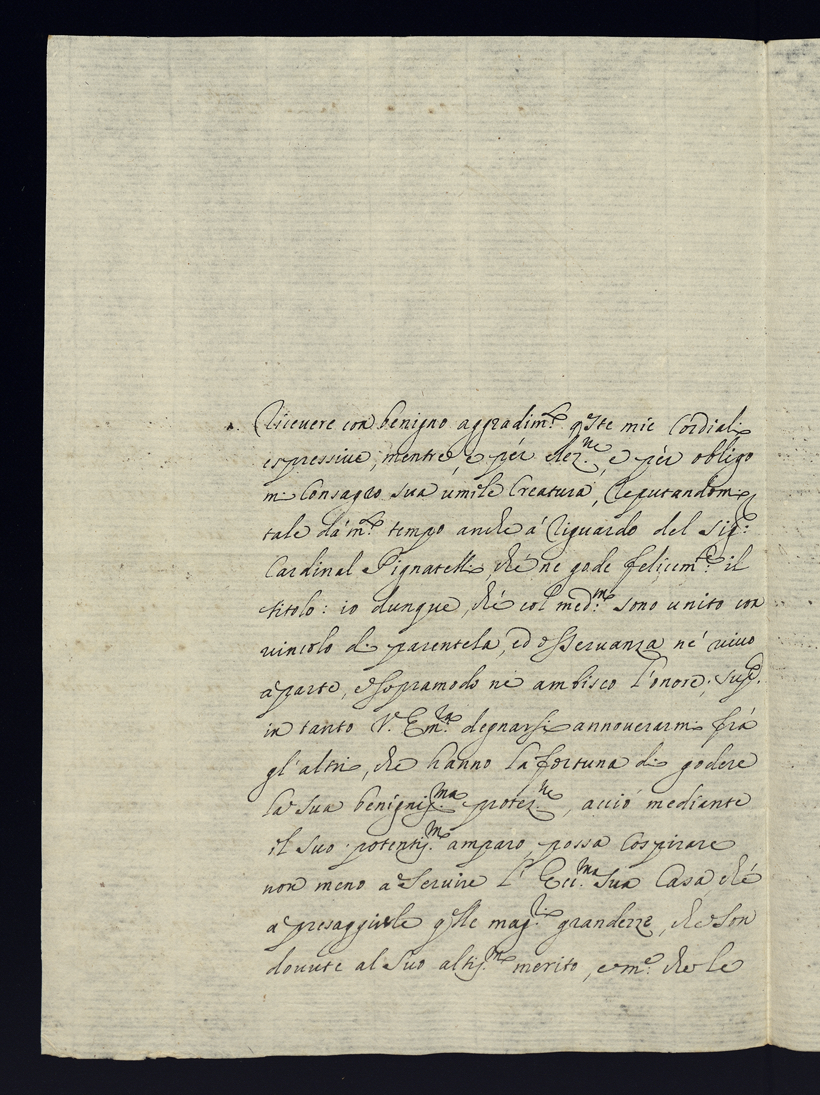 Riceuere con benigno aggradim.to q.ste mie Cordiali
espressiue, mentre e pér elez.ne, e pèr obligo
mi Consagro sua úmile Creatura, Reputandomi
tale dà m.to tempo anche a' Riguardo del Sig.r
Cardinal Pignatelli, ché ne gode felicem.te il
titolo: io dunque, ché col med.mo sono unito con
vincolo di parentela, ed osseruanza né vivo
a parte, e sopramodo né ambisco l'onore; sup.co
in tanto V. Em.za degnarsi annouerarmi frà
gl'altri, che hanno la fortuna di godere
la sua benigniss.ma protez.ne, acciò mediante
il suo potentiss.mo amparo possa Cospirare
non meno a seruire l'Ecc.ma sua Casa ché
a presaggirle q.lle mag.ri grandezze, che son
douute al suo altiss.mo merito, com.e che le